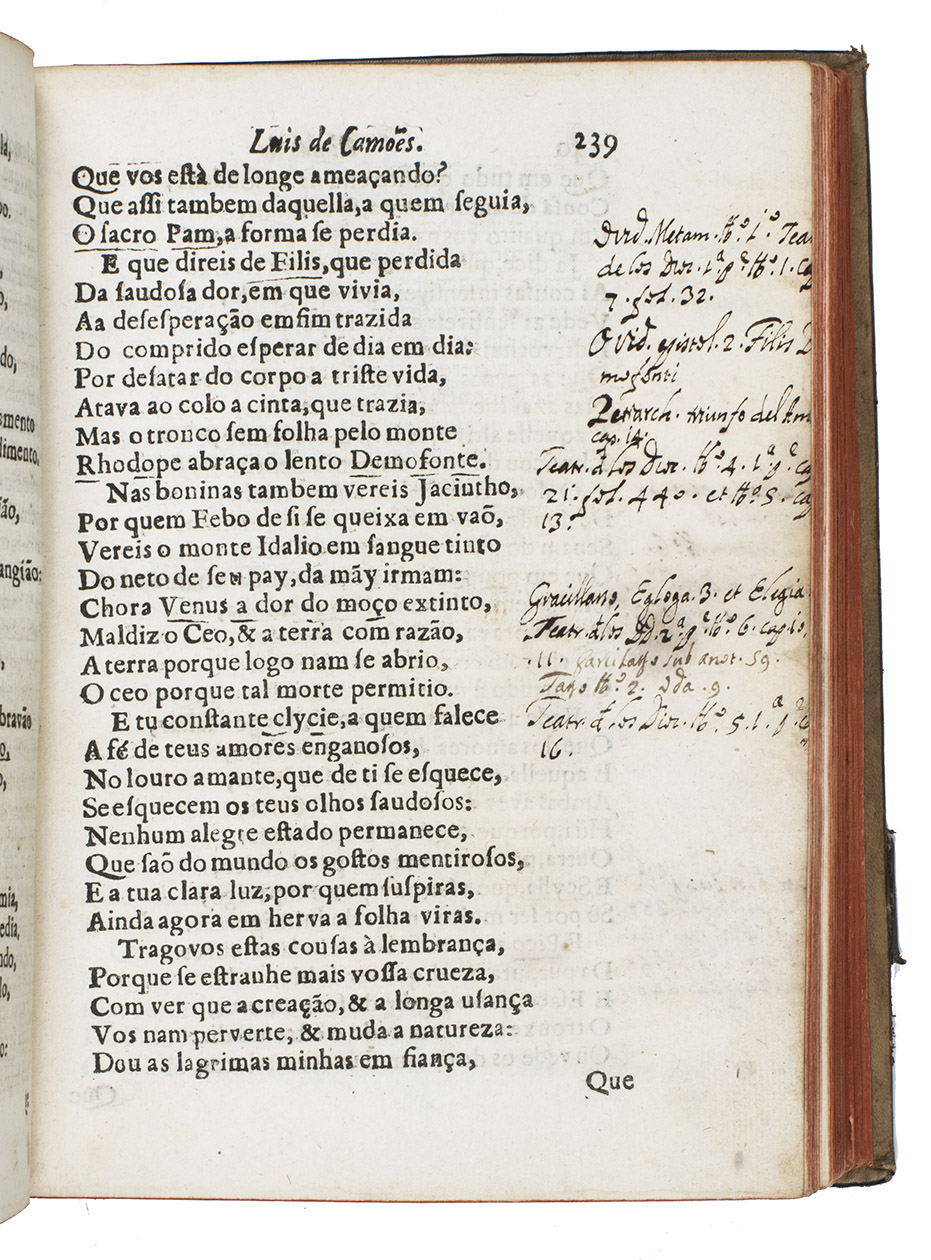 Luis de Camões. 239
Que vos eſtà de longe ameaçando?
Que aſſi tambem daquella, a quem ſeguia,
O ſacro Pam, a forma ſe perdia.
E que direis de Filis, que perdida
Da ſaudoſa dor, em que vivia,
Aa deſeſperação emfim trazida
Do comprido eſperar de dia em dia:
Por deſatar do corpo a triſte vida,
Atava ao colo a cinta, que trazia,
Mas o tronco ſem folha pelo monte
Rhodope abraça o lento Demofonte.
Nas boninas tambem vereis Jacintho,
Por quem Febo de ſi ſe queixa em vaõ,
Vereis o monte Idalio em ſangue tinto
Do neto de ſeu pay, da mãy irmam:
Chora Venus a dor do moço extinto,
Maldiz o Ceo, & a terra com razão,
A terra porque logo nam ſe abrio,
O ceo porque tal morte permitio.
E tu conſtante clycie, a quem falece
A fé de teus amores enganoſos,
No louro amante, que de ti ſe eſquece,
Se eſquecem os teus olhos ſaudoſos:
Nenhum alegre eſtado permanece,
Que ſaõ do mundo os goſtos mentiroſos,
E a tua clara luz, por quem ſuſpiras,
Ainda agora em herva a folha viras.
Tragovos eſtas couſas à lembrança,
Porque ſe eſtranhe mais voſſa crueza,
Com ver que a creação, & a longa uſança
Vos nam perverte, & muda a natureza:
Dou as lagrimas minhas em fiança,
Que
Ovid. Metam. lb.º 1.º Tea
de los Dios. 1.ª p.e lb.º 1. ca
7. fol. 32.
Ovid. epistol. 2. Filis D
mofonti
Petrarch. triunfo del Am
cap. 14.
Teatr. d los Dios. lb.º 4. 1.ª p.e ca
21. fol. 440. et lb.º 5. ca
13.
Egloga 3. et Elegia
Teatr. d los DD. 2.ª p.e lb.º 6. cap. 10,
11. sub anot. 59.
lb.º 2. Oda. 9.
Teatr. d los Dios. lb.º 5. 1.ª p.e
16.